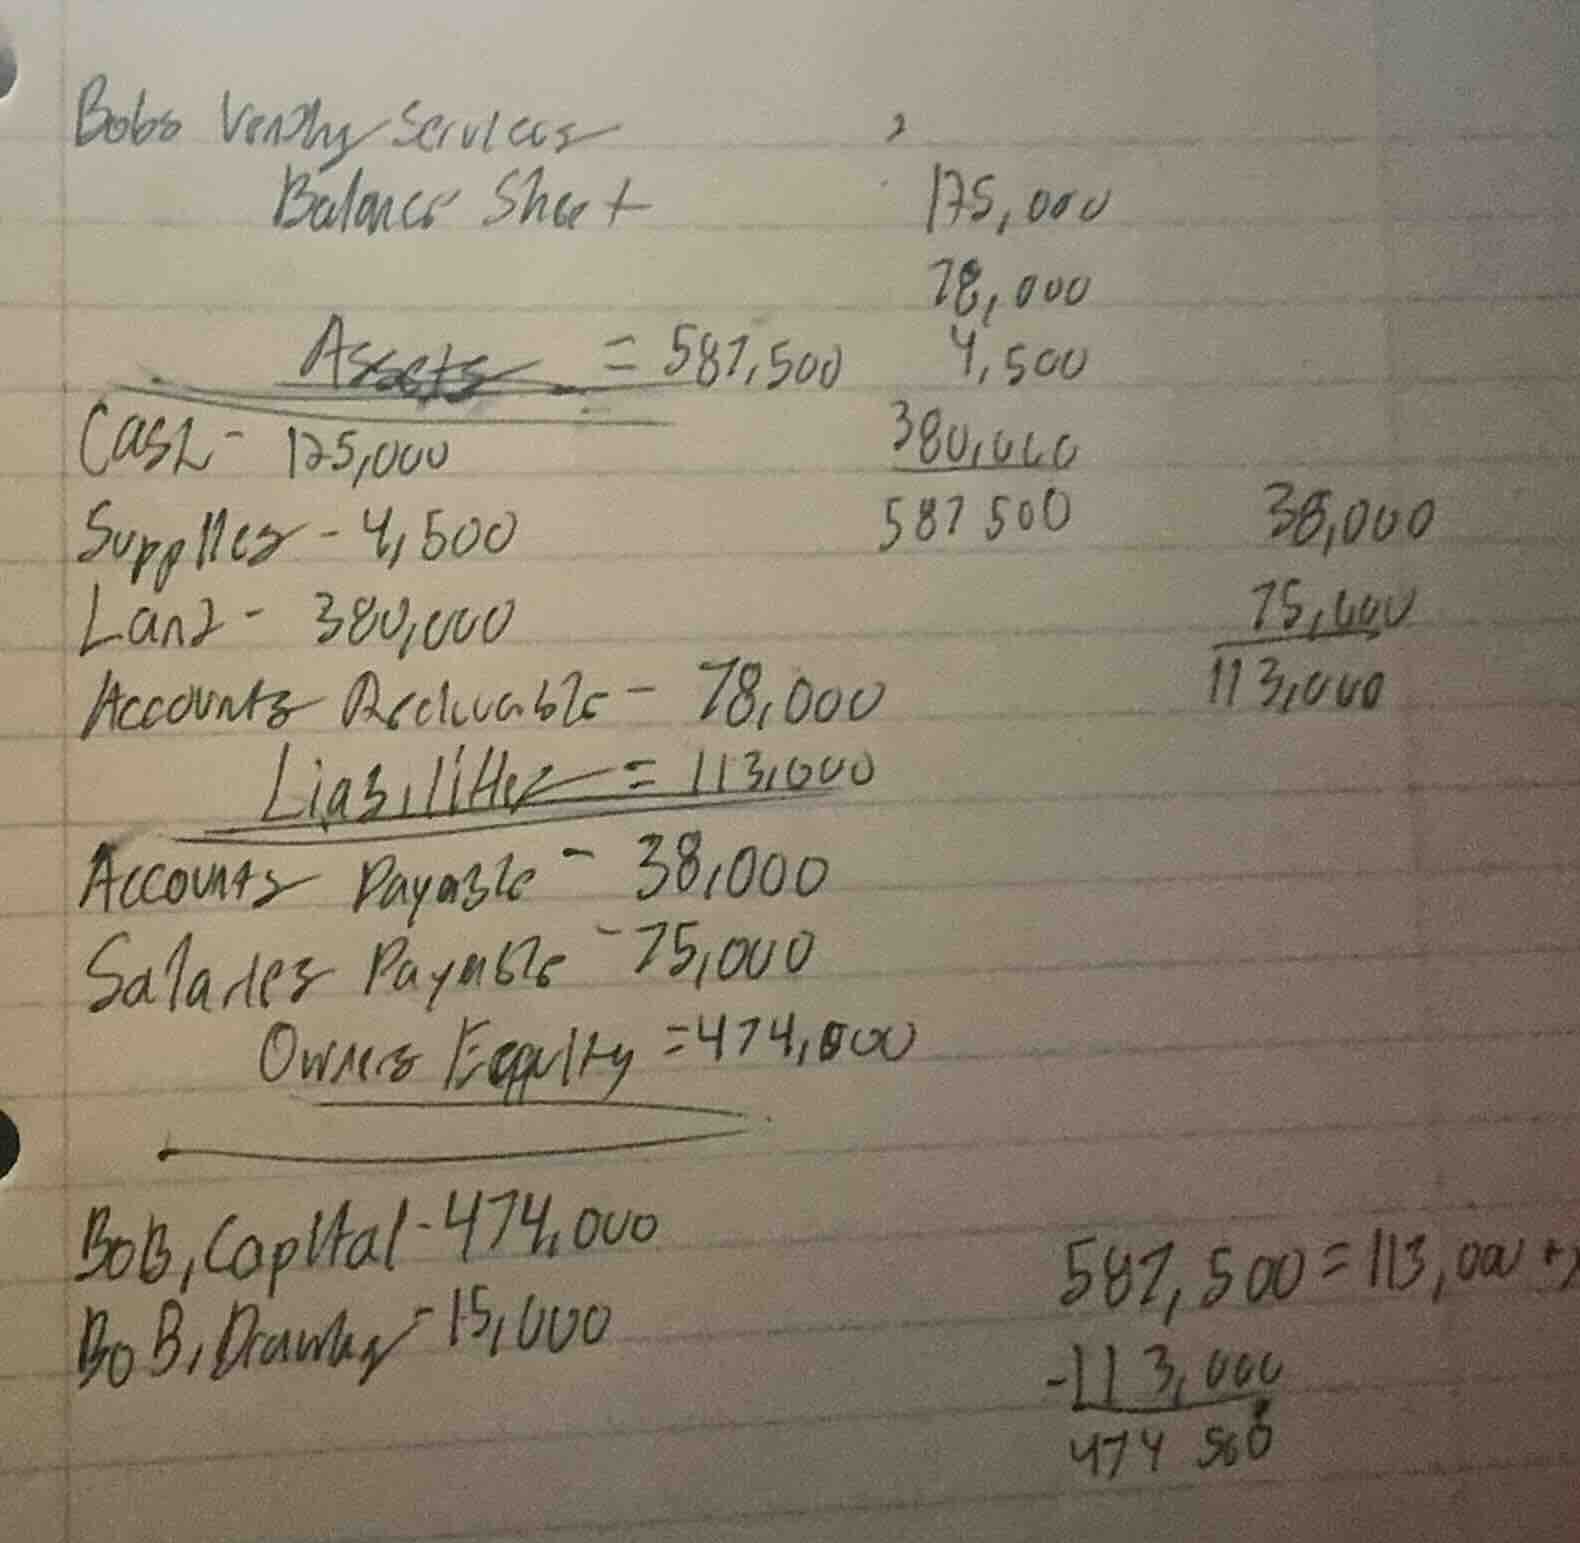 Bobs Vending Services
Balance Sheet
175,000
78,000
Assets = 587,500
4,500
Cash - 125,000
380,000
587 500
Supplies - 4,500
38,000
Land - 380,000
75,000
Accounts Recivable - 78,000
113,000
Liabilities = 113,000
Accounts Payable - 38,000
Salaries Payable - 75,000
Owners Equity = 474,000
BoB, Capital - 474,000
587,500 = 113,000 +x
BoB, Drawing - 15,000
-113,000
474 500